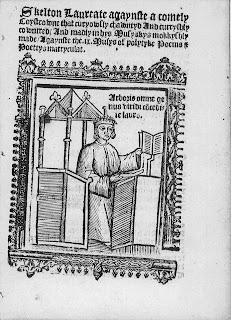 Skelton Laureate agaynste a comely
Coystrowne that curyowsly chawntyd And curryshly
cowntred, And madly in hys Musykkys mokkyshly
made, Agaynste the .ix. Musys of polytyke Poems &
Poettys matryculat.
Arboris omne ge
nus viridi
lauro.